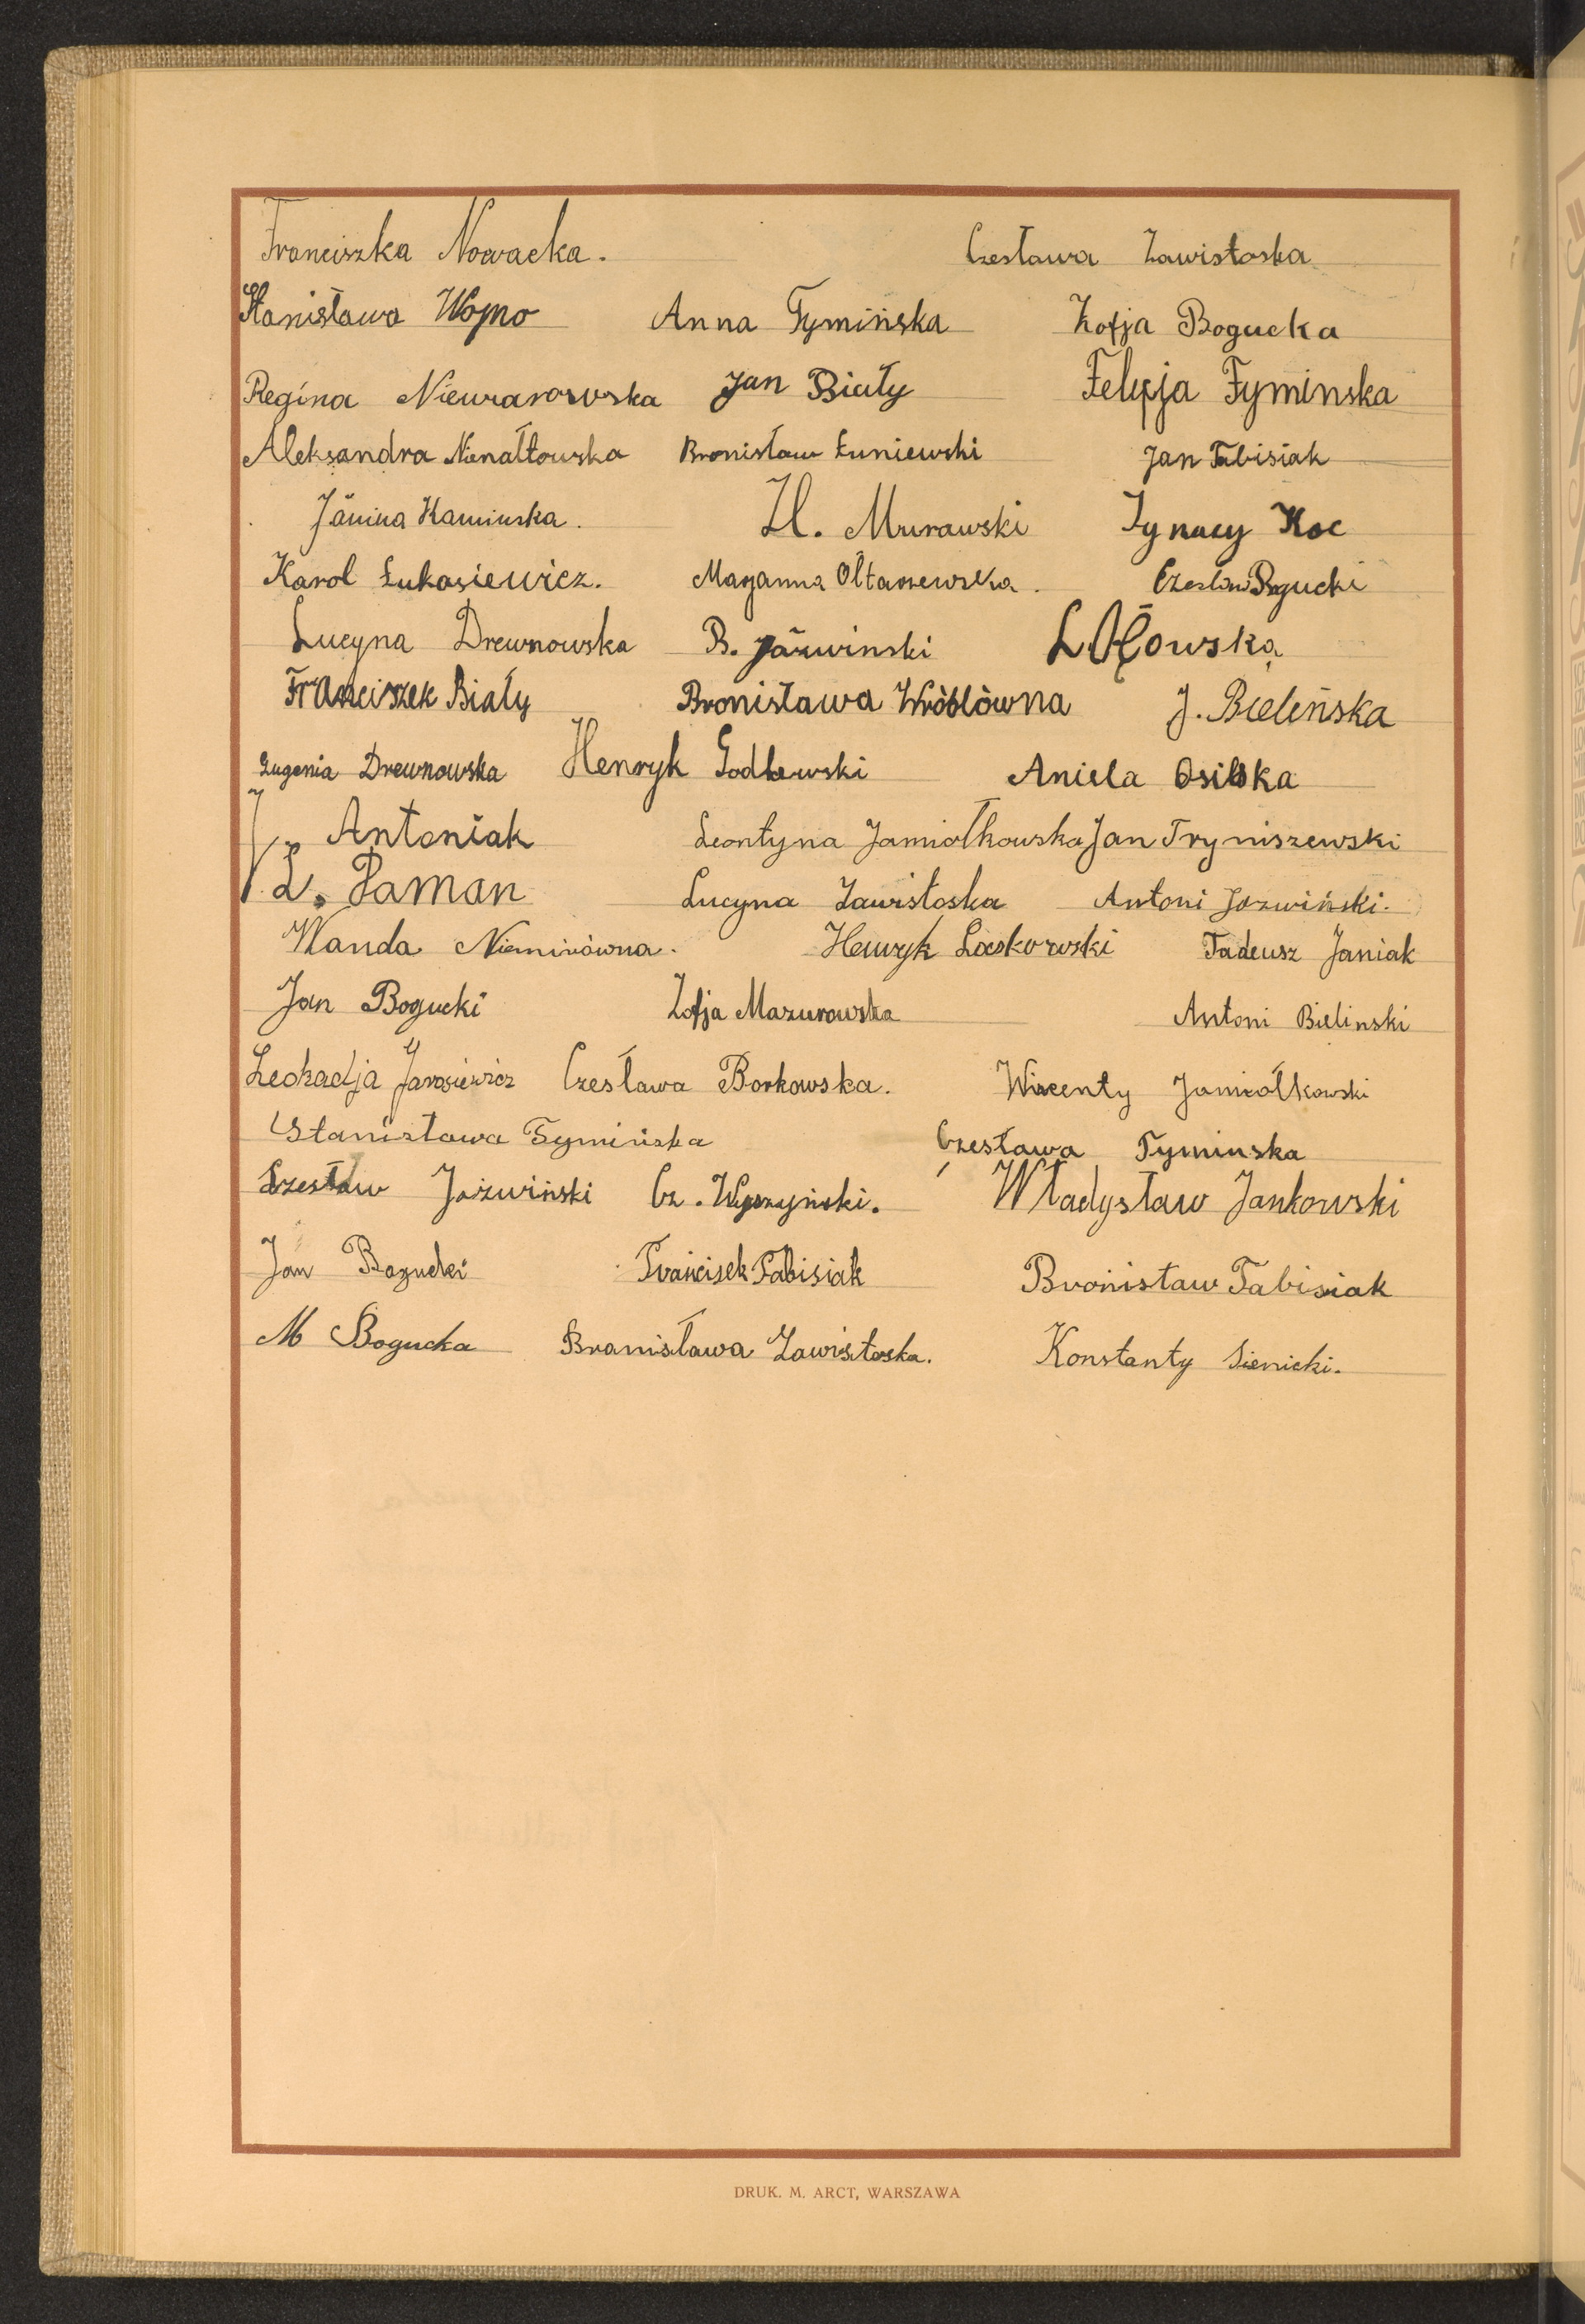 Franciszka Nowacka. Czesława Zawistoska
Stanisława Wojno Anna Tymińska Zofja Bogucka
Regina Niewiarowska Jan Biały Felicja Tyminska
Aleksandra Nienałtowska Bronisław Łuniewski Jan Tabisiak
Janina Kaminska. H. Murawski Ignacy Koc
Karol Łukasiewicz. Maryanna Ołtarzewska. Czesław Bogucki
Lucyna Drewnowska B. Jaźwinski
Franciszek Biały Bronisława Wróblówna J. Bielińska
Eugenia Drewnowska Henryk Godlewski Aniela Osibska
Antoniak Leontyna Jamiołkowska Jan Tryniszewski
L. Paman Lucyna Zawistoska Antoni Jazwiński.
Wanda Niemirówna. Henryk Laskowski Tadeusz Janiak
Jan Bogucki Zofja Mazurowska Antoni Bielinski
Leokadja Jarosiewicz Czesława Borkowska. Wincenty Jamiołkowski
Stanisława Tymińska Czesława Tyminska
Czesław Jaźwiński Cz. Wyszyński. Władysław Jankowski
Jan Bogucki Francisek Tabisiak Bronisław Tabisiak
M Bogucka Bronisława Zawistoska. Konstanty Sienicki.
DRUK. M. ARCT, WARSZAWA